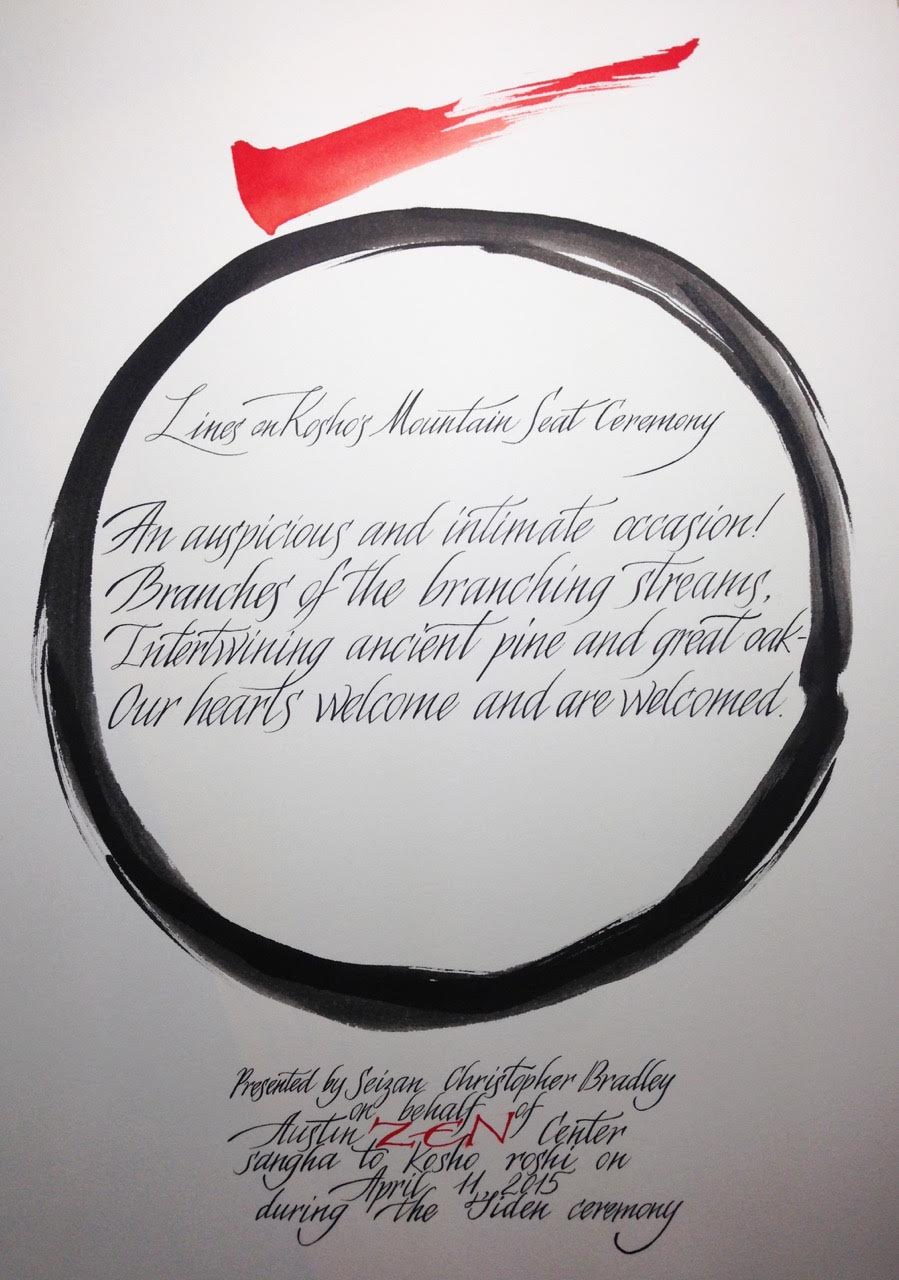 Lines on Kosho's Mountain Seat Ceremony
An auspicious and intimate occasion!
Branches of the branching streams,
Intertwining ancient pine and great oak-
Our hearts welcome and are welcomed.
Presented by Seizan Christopher Bradley
on behalf of
Austin ZEN Center
sangha to Kosho roshi on
April 11, 2015
during the Jiden ceremony